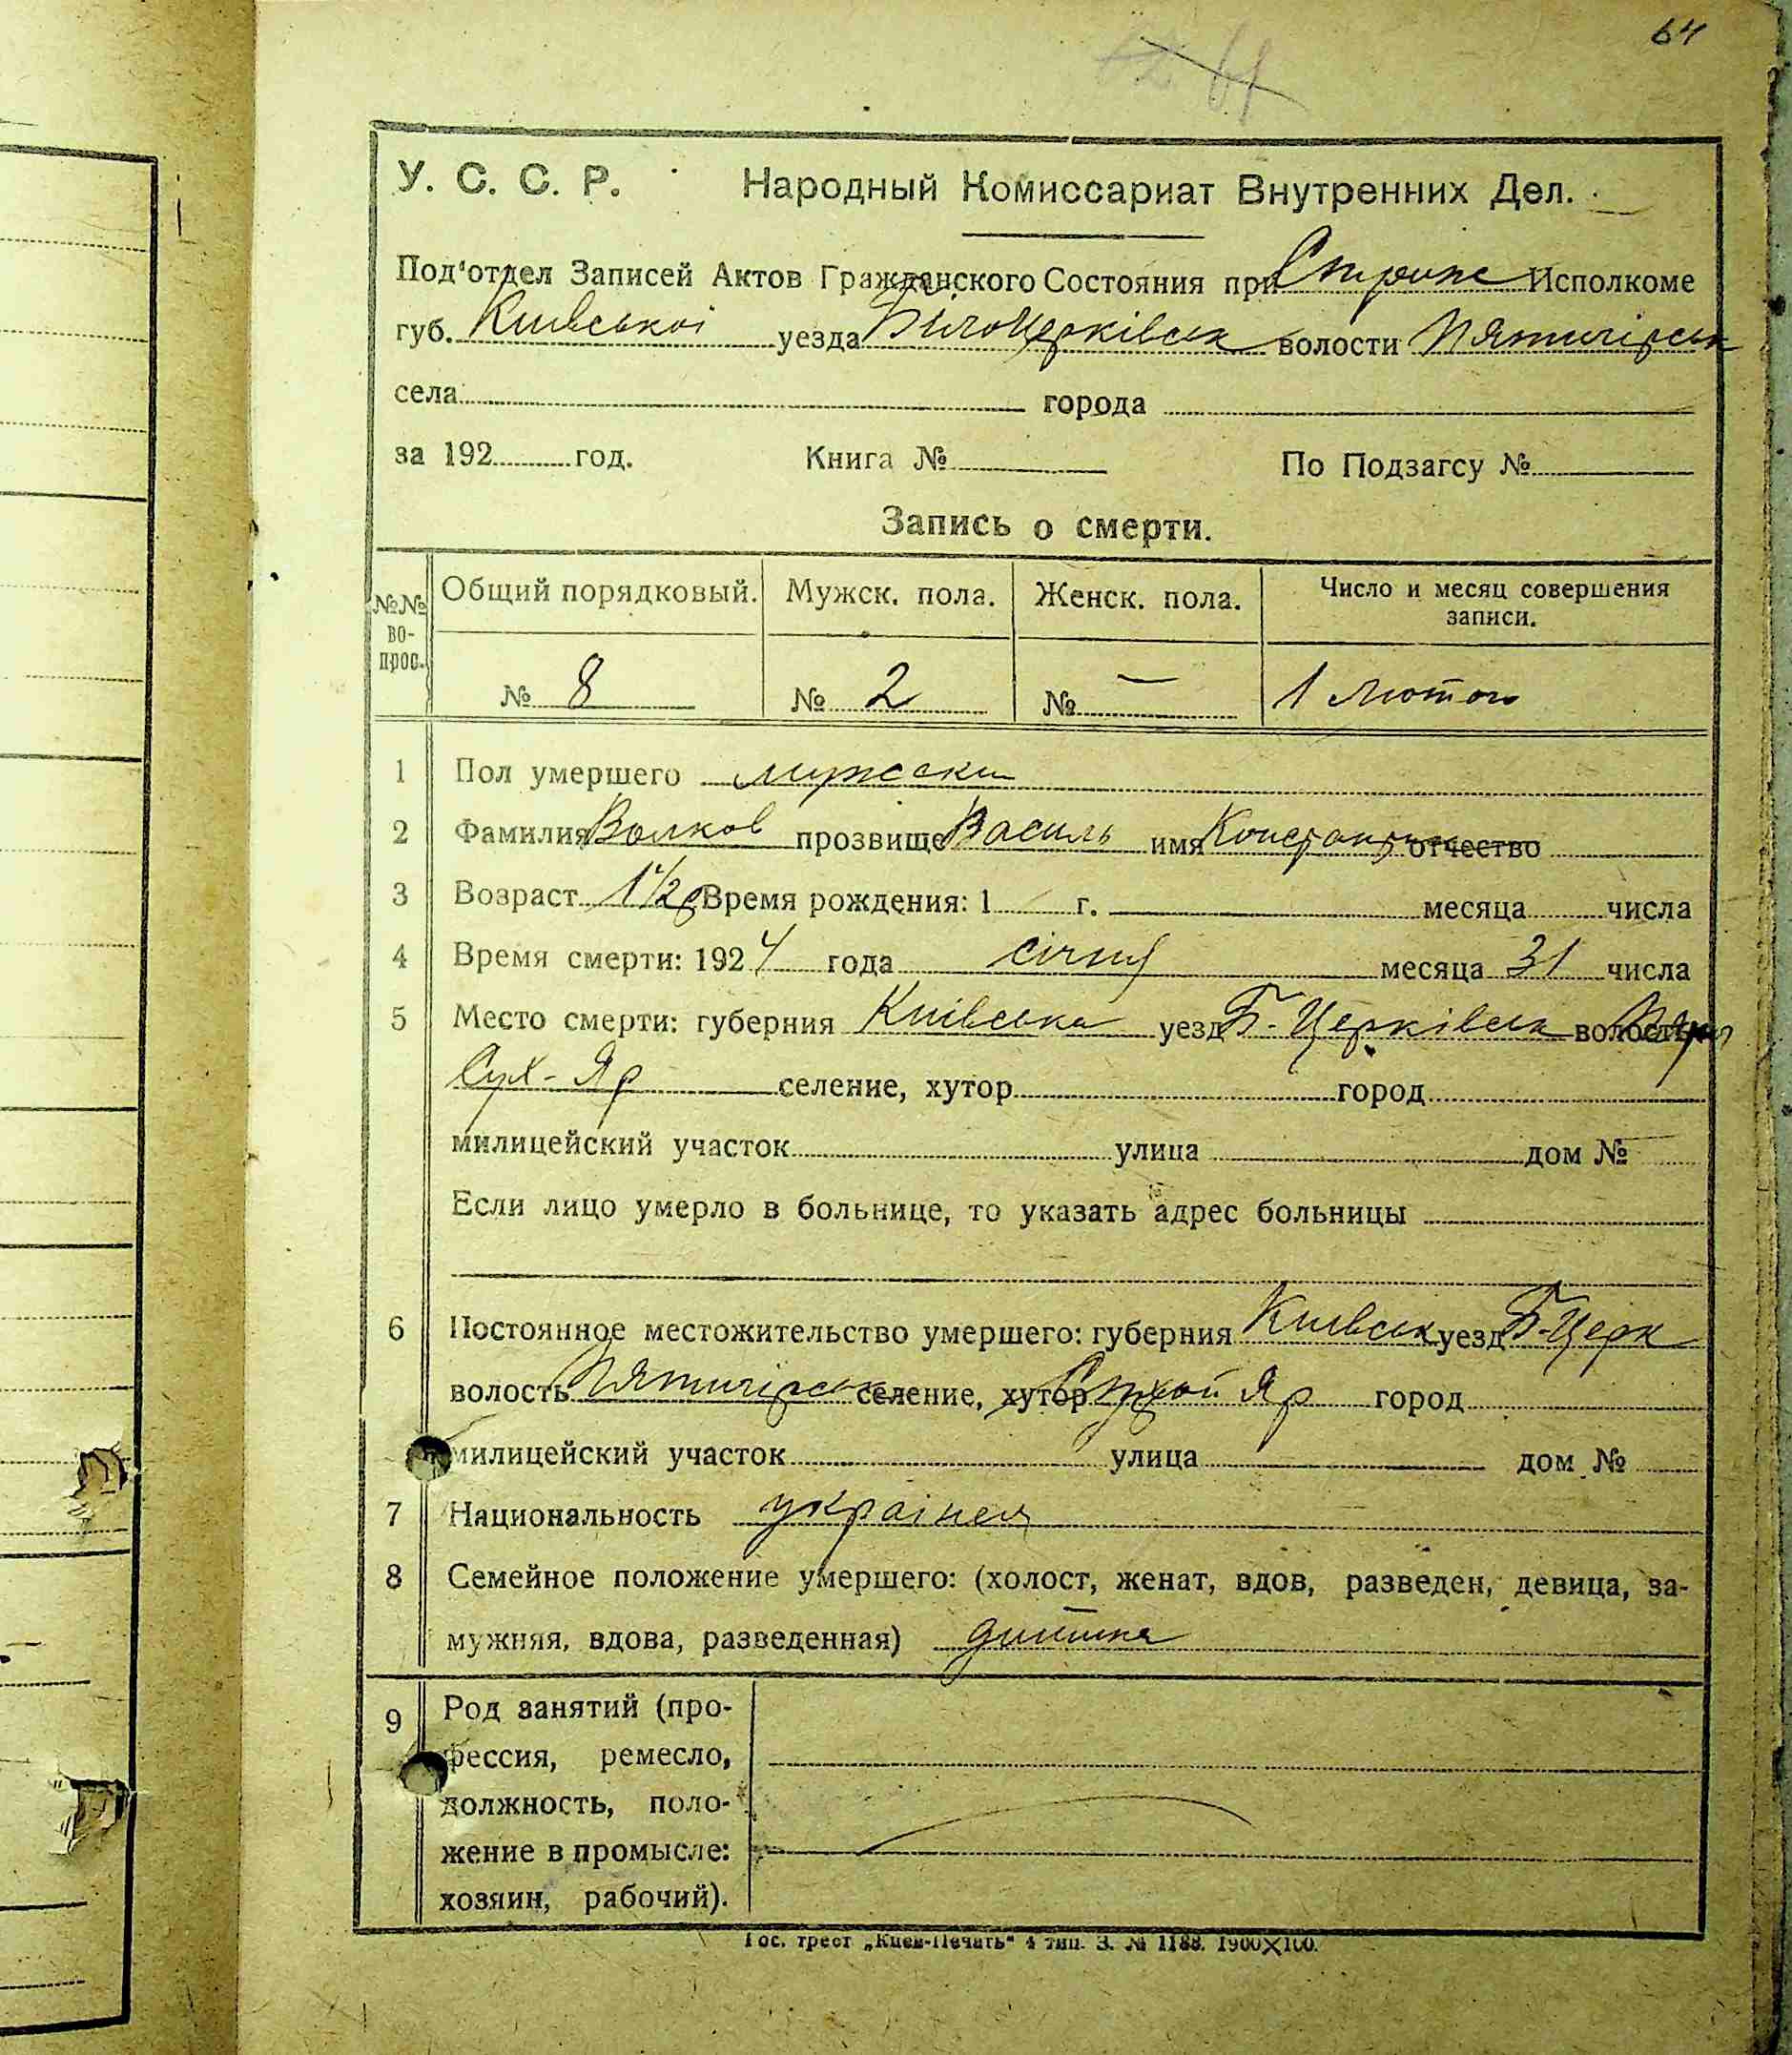 64
У. С. С. Р. Народный Комиссариат Внутренних Дел.
Под'отдел Записей Актов Гражданского Состояния при Исполкоме
губ. Київської уезда Білоцерківськ волости Пятигірськ
села города
за 192 год. Книга № По Подзагсу №
Запись о смерти.
№№ вопрос. Общий порядковый. Мужск. пола. Женск. пола. Число и месяц совершения записи.
№ 8 № 2 № — 1 Лютого
1 Пол умершего мужески
2 Фамилия Волков прозвище Василь имя Констант отчество
3 Возраст 1 1/2 Время рождения: 1 г. месяца числа
4 Время смерти: 1924 года січня месяца 31 числа
5 Место смерти: губерния Київська уезд Б-Церківськ волость
Сух-Яр селение, хутор город
милицейский участок улица дом №
Если лицо умерло в больнице, то указать адрес больницы
6 Постоянное местожительство умершего: губерния Київськ уезд Б-Церк
волость Пятигірськ селение, хутор Сухой Яр город
милицейский участок улица дом №
7 Национальность українец
8 Семейное положение умершего: (холост, женат, вдов, разведен, девица, за-
мужняя, вдова, разведенная) дитина
9 Род занятий (про-
фессия, ремесло,
должность, поло-
жение в промысле:
хозяин, рабочий).
Гос. трест „Киев-Печать" 4 тип. З. № 1188. 1900×100.